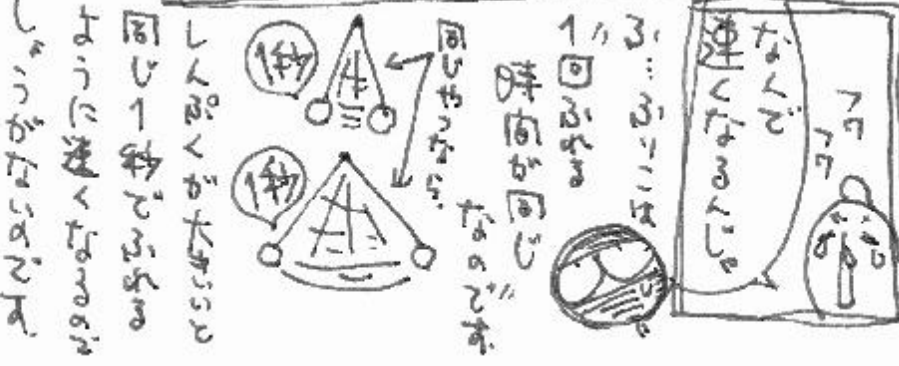 フワ
フワ
なんで
速くなるんじゃ
ふ…ふりこは
1回ふれる
時間が同じ
なのです
同じやつなら、
1秒
1秒
しんぷくが大きいと
同じ1秒でふれる
ように速くなるので
しょうがないのです。